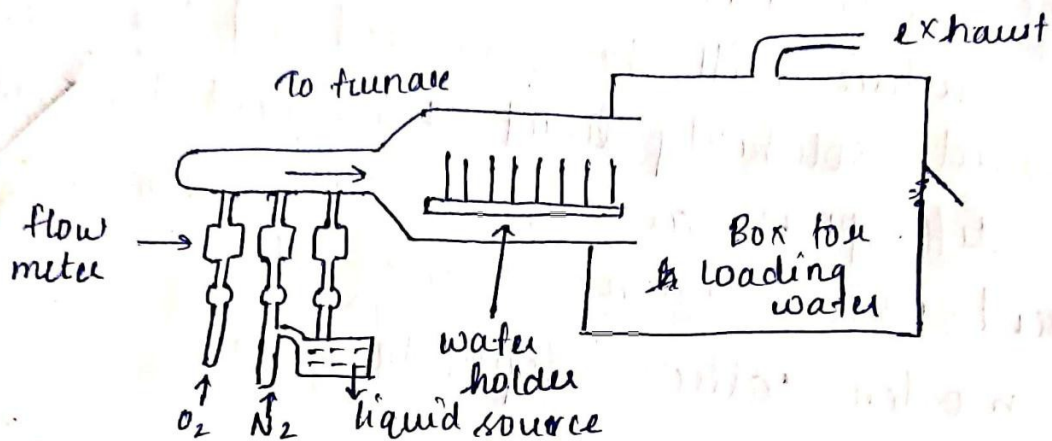 exhaust
To furnace
flow
meter
Box for
loading
wafer
wafer
holder
O2
N2
liquid source